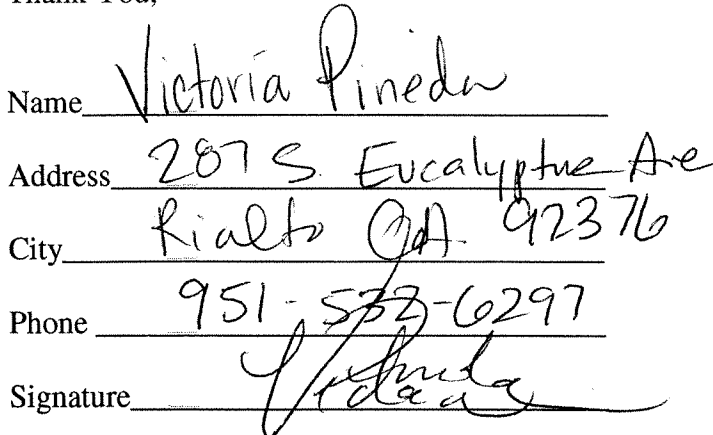 Thank You,
Name Victoria Pineda
Address 287 S. Eucalyptus Ave
City Rialto CA. 92376
Phone 951-532-6297
Signature